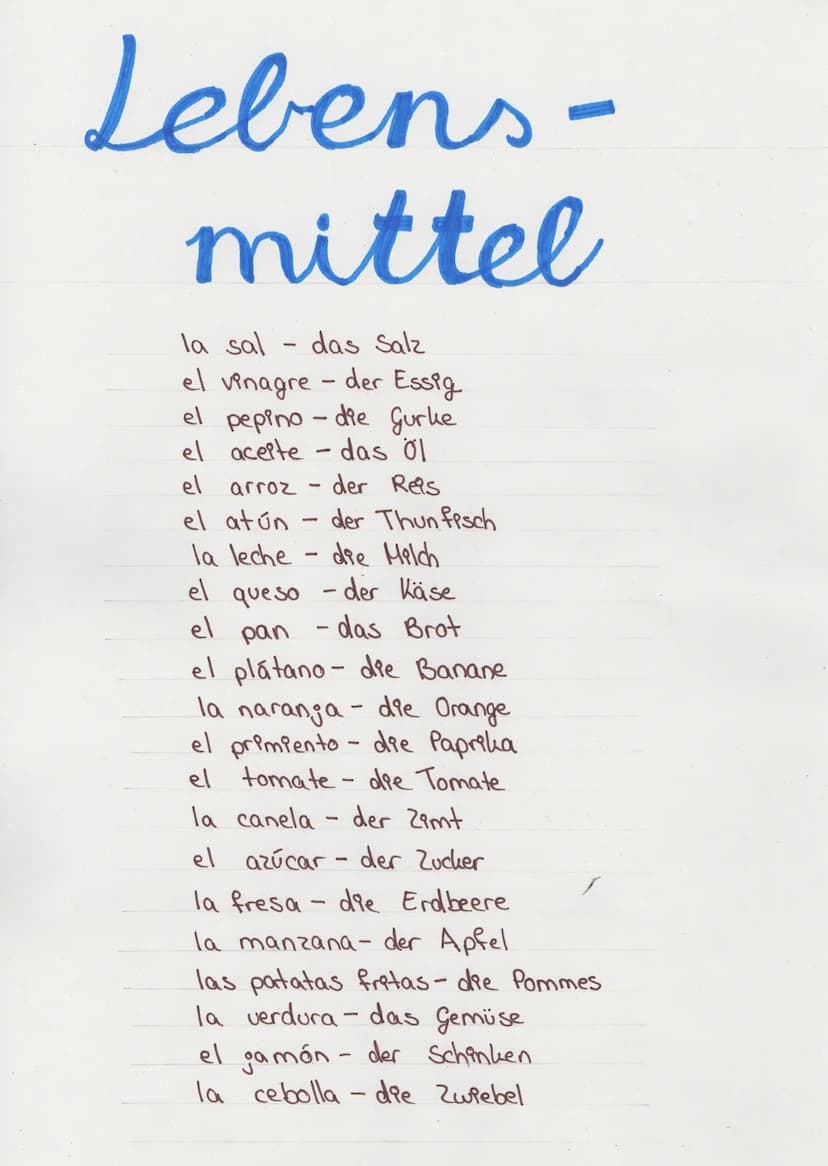 Lebens-
mittel
la sal - das Salz
el vinagre - der Essig
el pepino - die Gurke
el aceite - das Öl
el arroz - der Reis
el atún - der Thunfisch
la leche - die Milch
el queso - der Käse
el pan - das Brot
el plátano - die Banane
la naranja - die Orange
el primiento - die Paprika
el tomate - die Tomate
la canela - der Zimt
el azúcar - der Zucker
la fresa - die Erdbeere
la manzana - der Apfel
las patatas fritas - die Pommes
la verdura - das Gemüse
el jamón - der Schinken
la cebolla - die Zwiebel